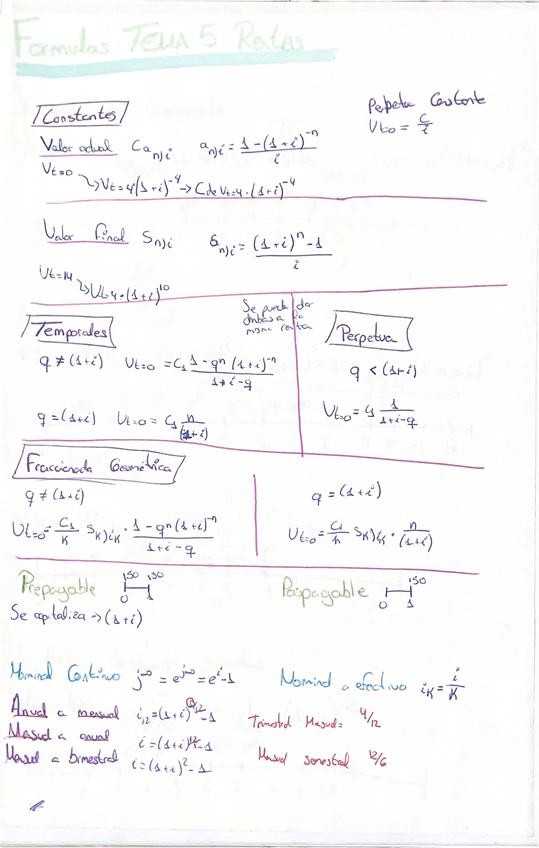 Formulas TEMA 5 Rentas
Constantes
Perpetua Constante
Vt=0 = C/i
Valor actual C a n)i a n)i = 1-(1+i)^-n / i
Vt=0
→ Vt=4(1+i)^-4 → C de Vt=4·(1+i)^-4
Valor Final S n)i S n)i = (1+i)^n - 1 / i
Vt=14
→ Vt=4·(1+i)^10
Se puede dar
ambas a la
misma renta
Temporales
q ≠ (1+i) Vt=0 = C1 1 - q^n (1+i)^-n / 1+i-q
q = (1+i) Vt=0 = C1 n / (1+i)
Perpetua
q < (1+i)
Vt=0 = C1 1 / 1+i-q
Fraccionada Geométrica
q ≠ (1+i)
Vt=0 = C1/K S K)iK · 1 - q^n (1+i)^-n / 1+i-q
q = (1+i)
Vt=0 = C1/K S K)iK · n / (1+i)
Prepagable 150 150
0 1
Se capitaliza → (1+i)
Pospagable 150
0 1
Nominal Continuo j∞ = e^j∞ = e^i - 1
Nominal a efectivo iK = i/K
Anual a mensual i12 = (1+i)^1/12 - 1
Mensual a anual i = (1+i)^12 - 1
Mensual a bimestral i = (1+i)^2 - 1
Trimestral Mensual = 4/12
Mensual semestral 12/6